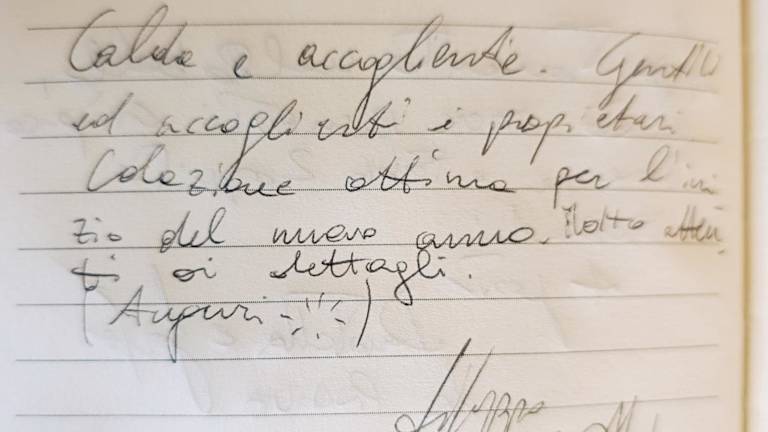 Calda e accogliente. Gentili
ed accoglienti i proprietari
Colazione ottima per l'ini
zio del nuovo anno. Molto atten
ti ai dettagli.
(Auguri )